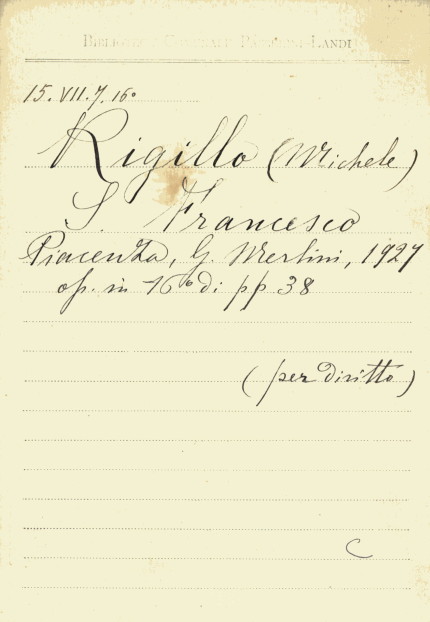 Biblioteca Comunale Passerini-Landi
15. VII. 7. 16°
Rigillo (Michele)
S. Francesco
Piacenza, G. Merlini, 1927
op. in 16° di pp 38
(per diritto)
C